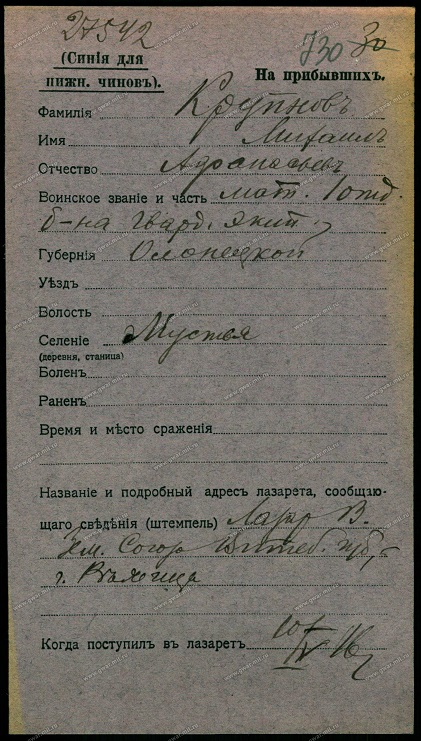 27542
730 30
(Синія для
нижн. чиновъ).
На прибывшихъ.
Фамилія Крупновъ
Имя Михаилъ
Отчество
Воинское званіе и часть мат. 1 отд.
б-на Гвард. экип.
Губернія Олонецкой
Уѣздъ
Волость
Селеніе Мустоя
(деревня, станица)
Боленъ
Раненъ
Время и мѣсто сраженія
Названіе и подробный адресъ лазарета, сообщаю-
щаго свѣдѣнія (штемпель) Лазар В.
Зем. Союз Витеб. губ.,
г.
Когда поступилъ въ лазаретъ 10/IV 16 г